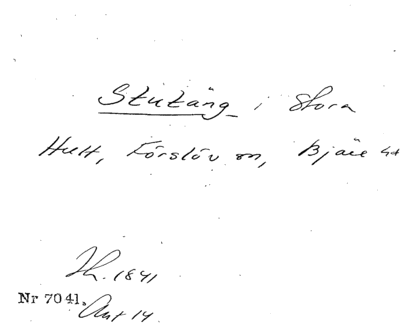 Stutäng i Stora
Hult, Förslöv sn, Bjäre hd
Th. 1841
Nr 7041. Akt 14